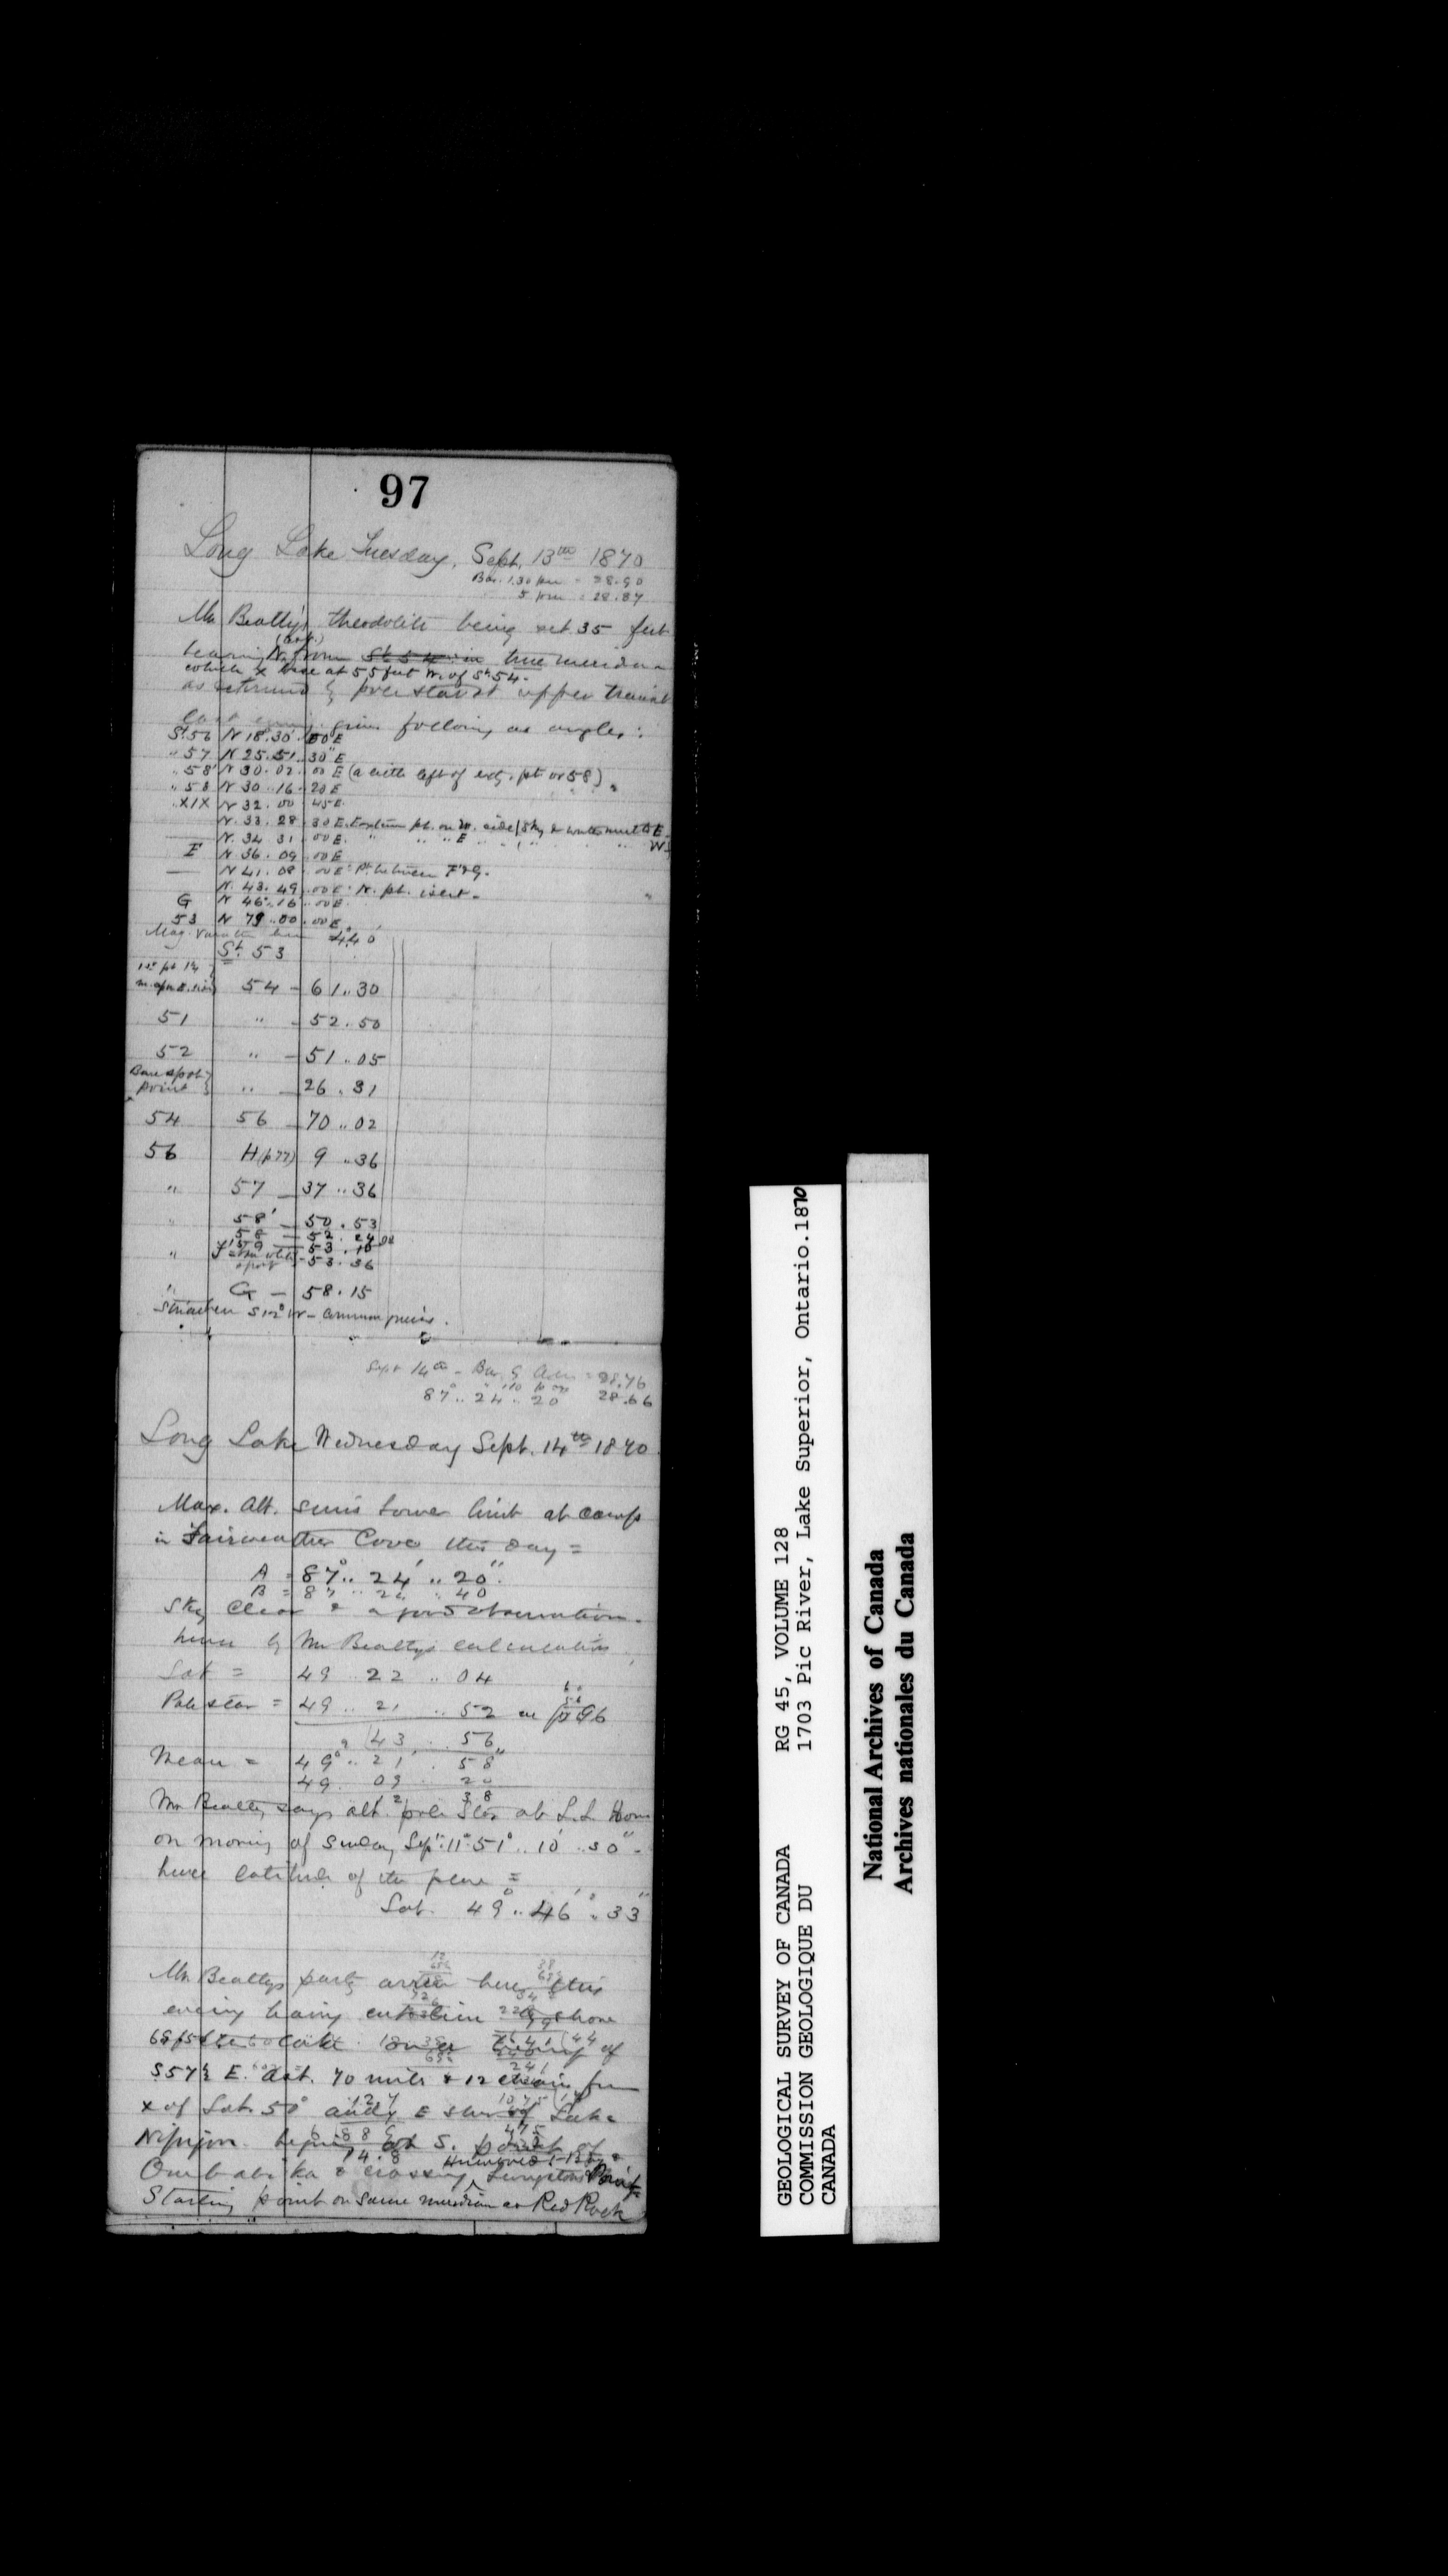 97
Long Lake Tuesday, Sept. 13th 1870
Bar. 1.30 pm = 28.90
5 pm = 28.87
Mr Beatty's theodolite being set 35 feet
bearing N. from St 54 in true meridian
which x base at 55 feet W. of St 54.
as determined by pole star at upper transit
last evening gives following as angles:
St. 56 N 18.30.00 E
" 57 N 25.51.30" E
" 58' N 30.02.00 E (a little left of extr. pt. or 58)
" 58 N 30.16.20 E
" XIX N 32.00.45 E.
N. 33.28.30 E. Extreme pt. on W. side (Sky & water meet) E
— N. 34 31.00 E. " " " E " " " W.
F N 36.09.00 E
— N 41.08.00 E Pt. between F & G.
N. 43.49.00 E. N. pt. islet.
G N 46.16.00 E.
53 N 79.00.00 E
Mag. Variation here 4°40'
St. 53
1st pt
54 – 61..30
51 " – 52.50
52 " – 51..05
Bare spot
point " – 26.31
54 56 – 70..02
56 H (p 77) 9..36
" 57 – 37..36
" 58' – 50.53
58 – 52.24
59 – 53.10
" white
spot – 53.36
" G – 58.15
Striation S 12° W – common presise.
Sept 14th – Bar. 9 = 28.76
87°..24..20 28.66
Long Lake Wednesday Sept. 14th 1870.
Max. Alt. sun's lower limb at camp
in Fairweather Cove this day =
A = 87°..24'..20".
B = 8".. 24..40
Sky Clear & a good observation.
hence by Mr Beatty's calculation
Lat = 49..22..04
Pole star = 49..21..52 on p 96
43..56
Mean = 49°..21'..58"
49.09.20
2 38
Mr Beatty says alt. pole star at L. L. House
on morning of Sunday Sept. 11th 51°..10'..30".
hence latitude of the place =
Lat. 49°..46'..33"
Mr Beattys party arrive here this
evening having cut a line shore
of
S 57½ E. dist. 70 miles & 12 chains from
x of Lat. 50° and E shore of Lake
Nipigon. S. point of
Ombabika & crossing Livingstons Point
Starting point on same meridian as Red Rock
GEOLOGICAL SURVEY OF CANADA RG 45, VOLUME 128
COMMISSION GEOLOGIQUE DU 1703 Pic River, Lake Superior, Ontario.1870
CANADA
National Archives of Canada
Archives nationales du Canada